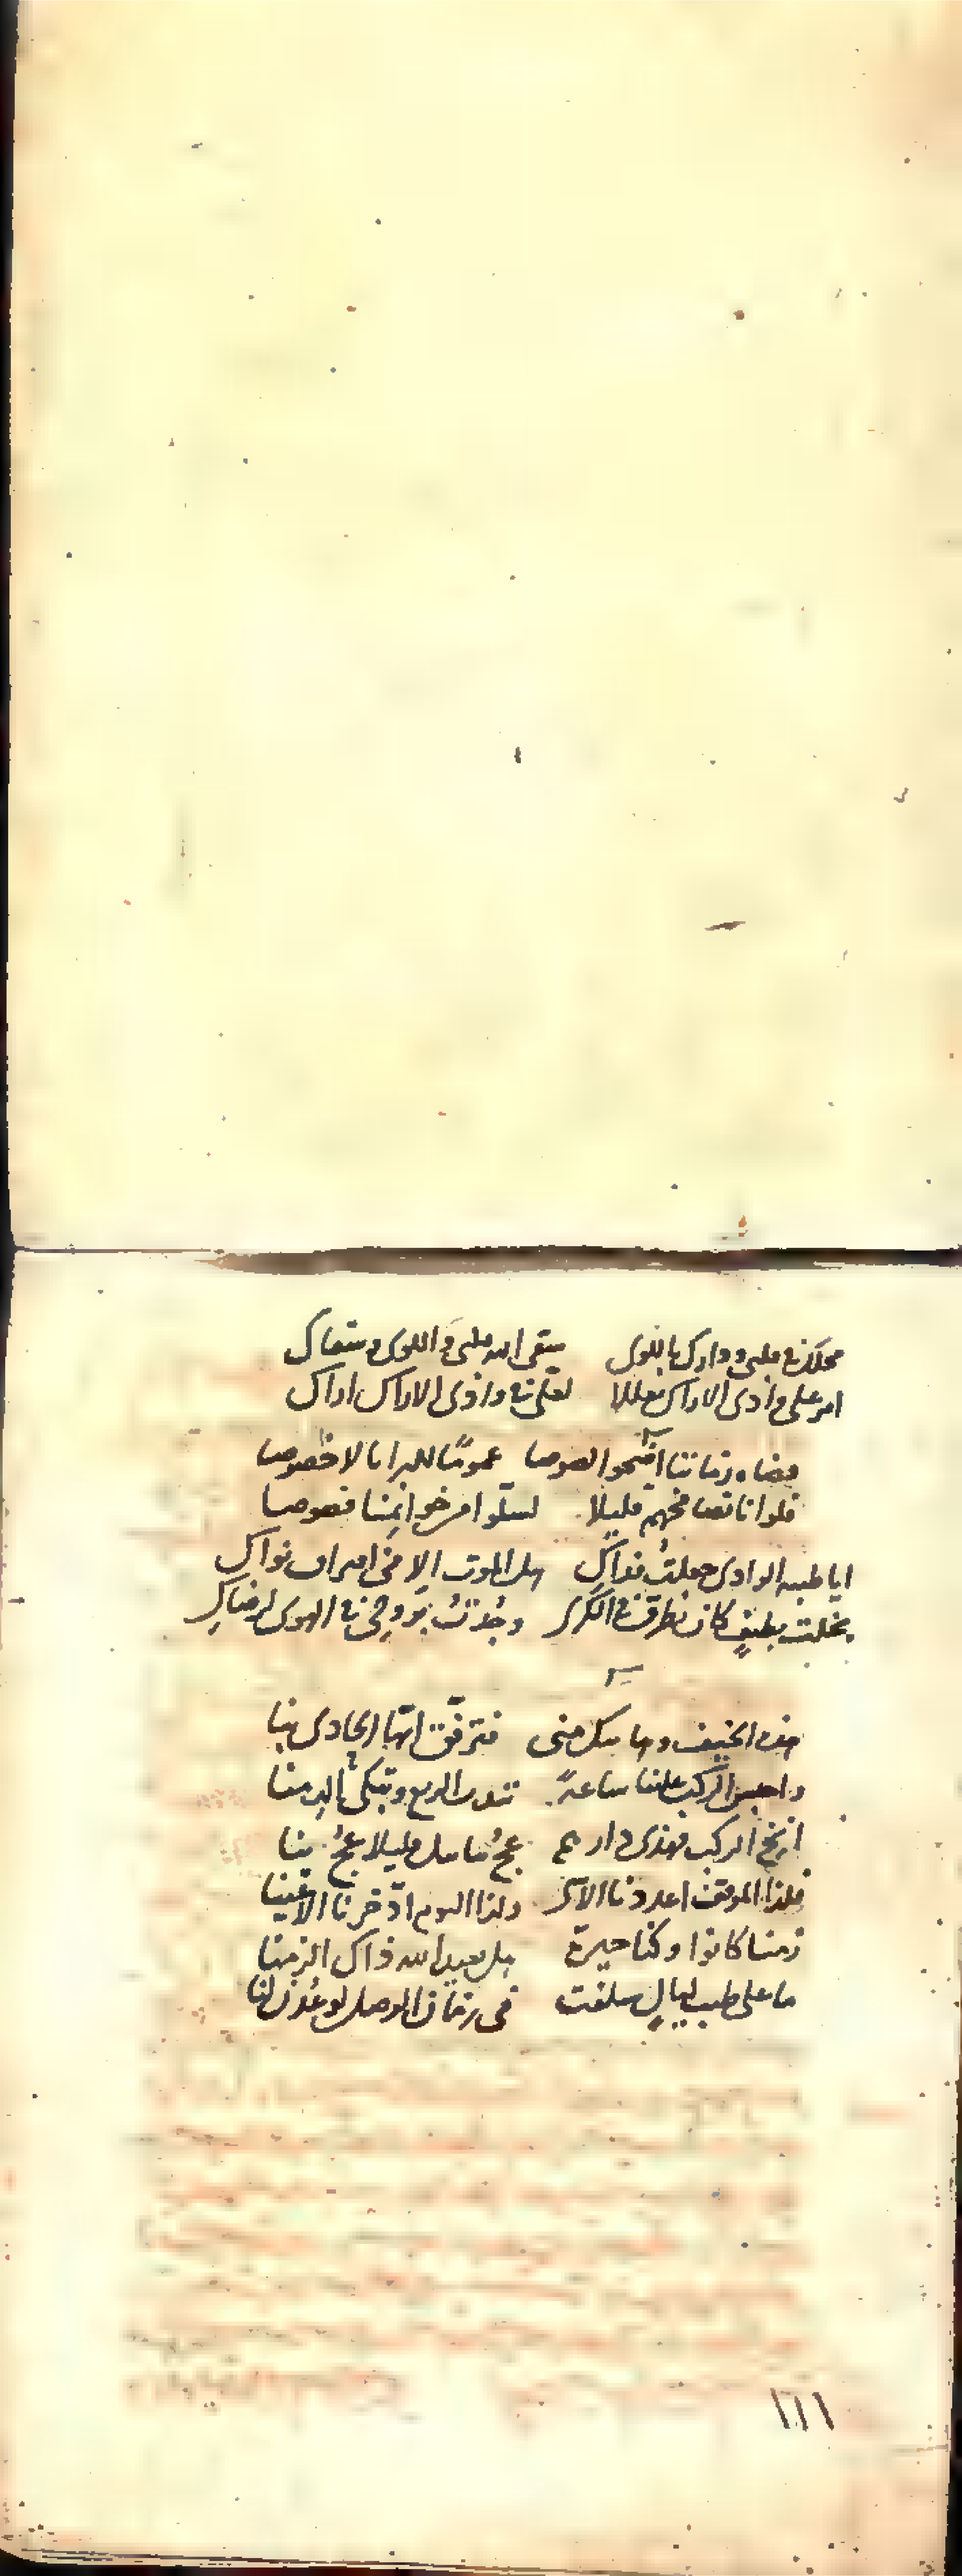 محلك في قلبي ودارك باللوى سقى الله قلبي واللوى وسقاك
امر على وادى الاراك تعللا لعلى في وادى الاراك اراك
قضاة زماننا اضحوا لصوصا عموما للبرايا لا خصوصا
فلو انا تصافحهم قليلا لسلوا من خواتمنا فصوصا
ايا ظبية الوادى جعلت فداك هل الموت الا من اليم نواك
بخلت بطيف كان يطرق في الكرى وجدت بروحي في الهوى لرضاك
هذه الخيف وهاتيك منى فترفق ايها الحادى بنا
واحبس الركب علينا ساعة نندب الربع ونبكى الدمنا
انخ الركب فهذى دارهم عج قليلا عج بنا
فلذا الموقف اعددنا ولذا اليوم ادخرنا الاعينا
زمنا كانوا وكنا جيرة هل يعيد الله ذاك الزمنا
ما على طيب ليال سلفت في زمان الوصل لو عدن لنا
١١١